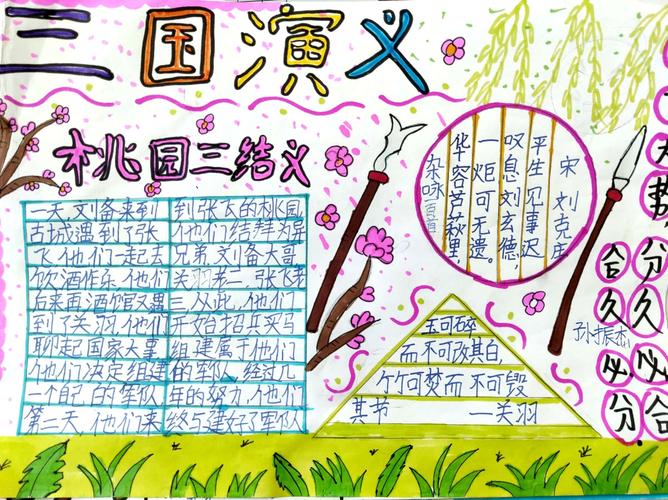 三国演义
桃园三结义
一天,刘备来到
古城遇到了张
飞他们一起去
饮酒作乐,他们
后来再酒馆又遇
到了关羽,他们
聊起国家大事
他们决定组建
一个自己的军队
第二天,他们来
到张飞的桃园
他们结拜为异
兄弟,刘备大哥
关羽老二,张飞老
三,从此,他们
开始招兵买马
组建属于他们
的军队,经过几
年的努力,他们
终与建好了军队
杂咏
华容芦荻里,
一炬可无遗。
叹息刘玄德,
平生见事迟
宋 刘克庄
玉可碎
而不可改其白,
竹可焚而不可毁
其节 一关羽
孙振杰
大势
分久必合
合久必分